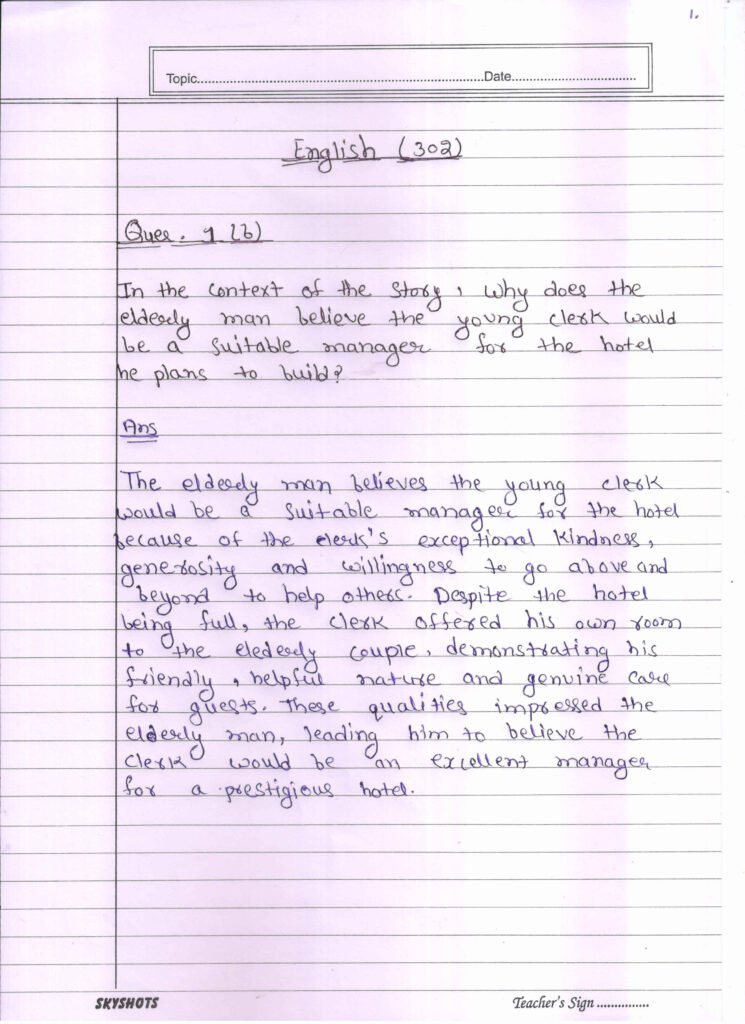 1.
Topic..........................................................................................Date...................................
English (302)
Ques. 1 (b)
In the context of the story, why does the
elderly man believe the young clerk would
be a suitable manager for the hotel
he plans to build?
Ans
The elderly man believes the young clerk
would be a suitable manager for the hotel
because of the clerk's exceptional kindness,
generosity and willingness to go above and
beyond to help others. Despite the hotel
being full, the clerk offered his own room
to the elederly couple, demonstrating his
friendly, helpful nature and genuine care
for guests. These qualities impressed the
elderly man, leading him to believe the
clerk would be an excellent manager
for a prestigious hotel.
SKYSHOTS
Teacher's Sign ...............